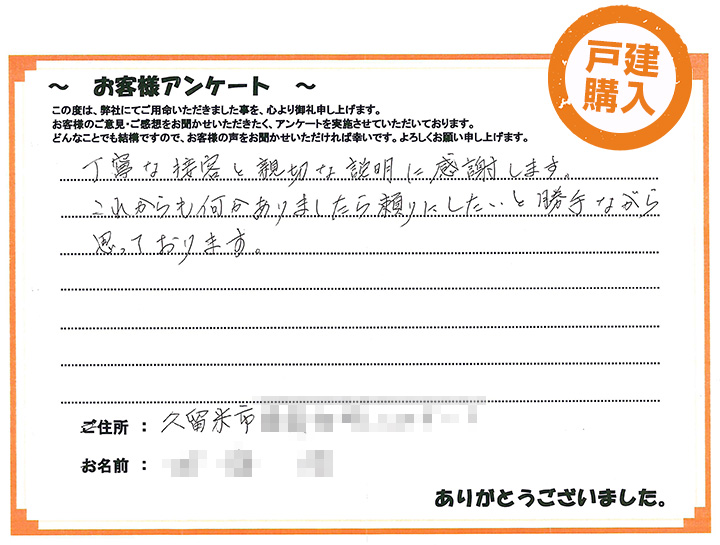 戸建
購入
～ お客様アンケート ～
この度は、弊社にてご用命いただきました事を、心より御礼申し上げます。
お客様のご意見・ご感想をお聞かせいただきたく、アンケートを実施させていただいております。
どんなことでも結構ですので、お客様の声をお聞かせいただければ幸いです。よろしくお願い申し上げます。
丁寧な接客と親切な説明に感謝します。
これからも何かありましたら頼りにしたいと勝手ながら
思っております。
ご住所 ： 久留米市
お名前 ：
ありがとうございました。